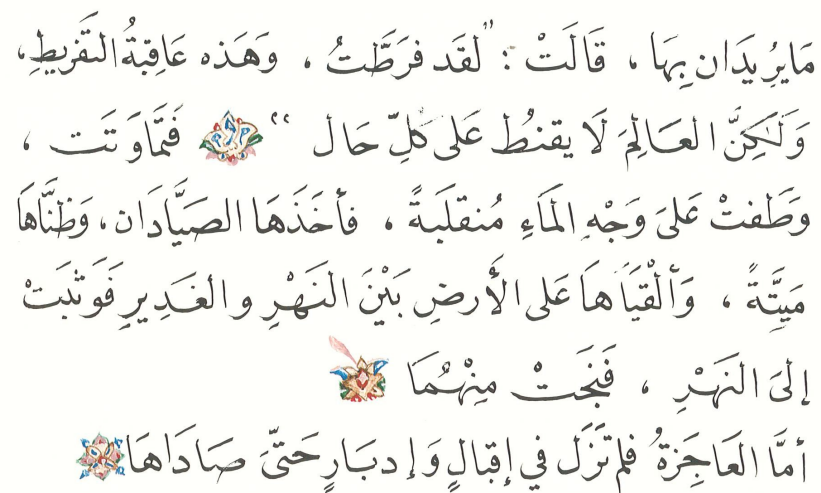 مَايُرِيدَانِ بِهَا ، قَالَتْ : "لَقَد فَرَّطتُ ، وَهَذه عَاقِبَةُ التَفرِيطِ،
وَلَكِنَّ العَالِمَ لَا يقنطُ عَلى كلِّ حَال " فَتَمَاوَتَت ،
وَطَفتْ عَلىَ وَجْهِ المَاءِ مُنقَلَبةً ، فأخَذَهَا الصَيَّادَان، وَظنَّاهَا
مَيِّتَةً ، وَألْقَيَاهَا عَلى الأَرضِ بَيْنَ النَهْرِ والغَدِيرِ فَوَثبَتْ
إلىَ النَهَرِ ، فَنَجَتْ مِنْهُمَا
أمَّا العَاجِزةُ فلم تَزَل في إقبَالٍ وَإدبَارٍ حَتىَّ صَادَاهَا